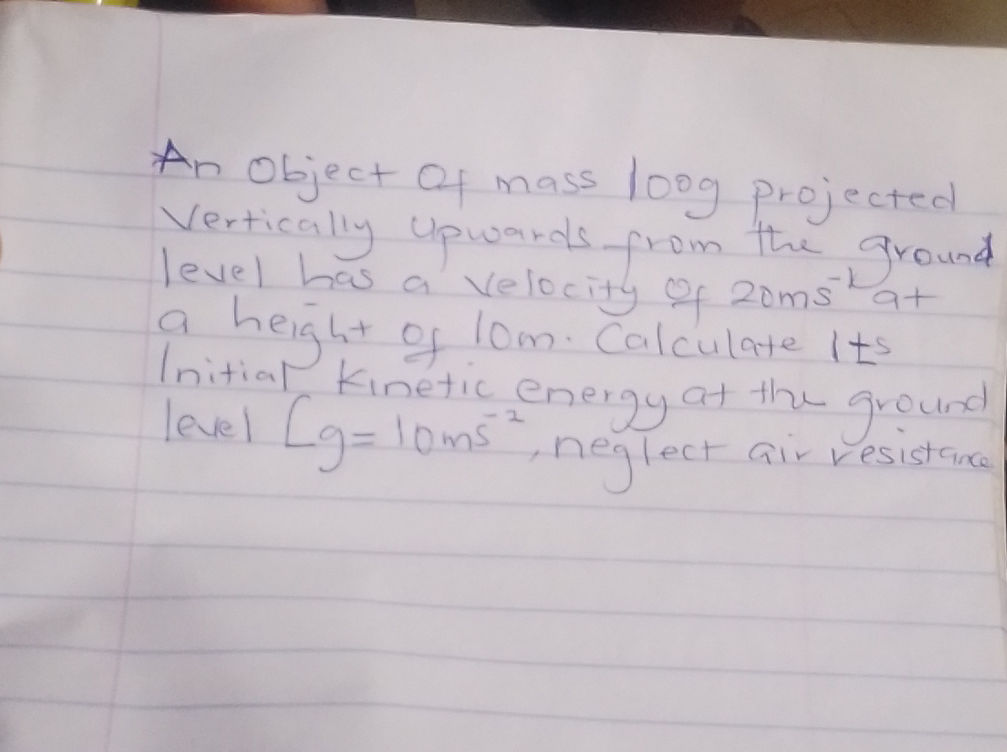 An Object Of mass 100g projected
Vertically Upwards from the ground
level has a velocity Of 20ms⁻¹ at
a height of 10m. Calculate Its
Initial Kinetic energy at the ground
level [g=10ms⁻², neglect air resistance